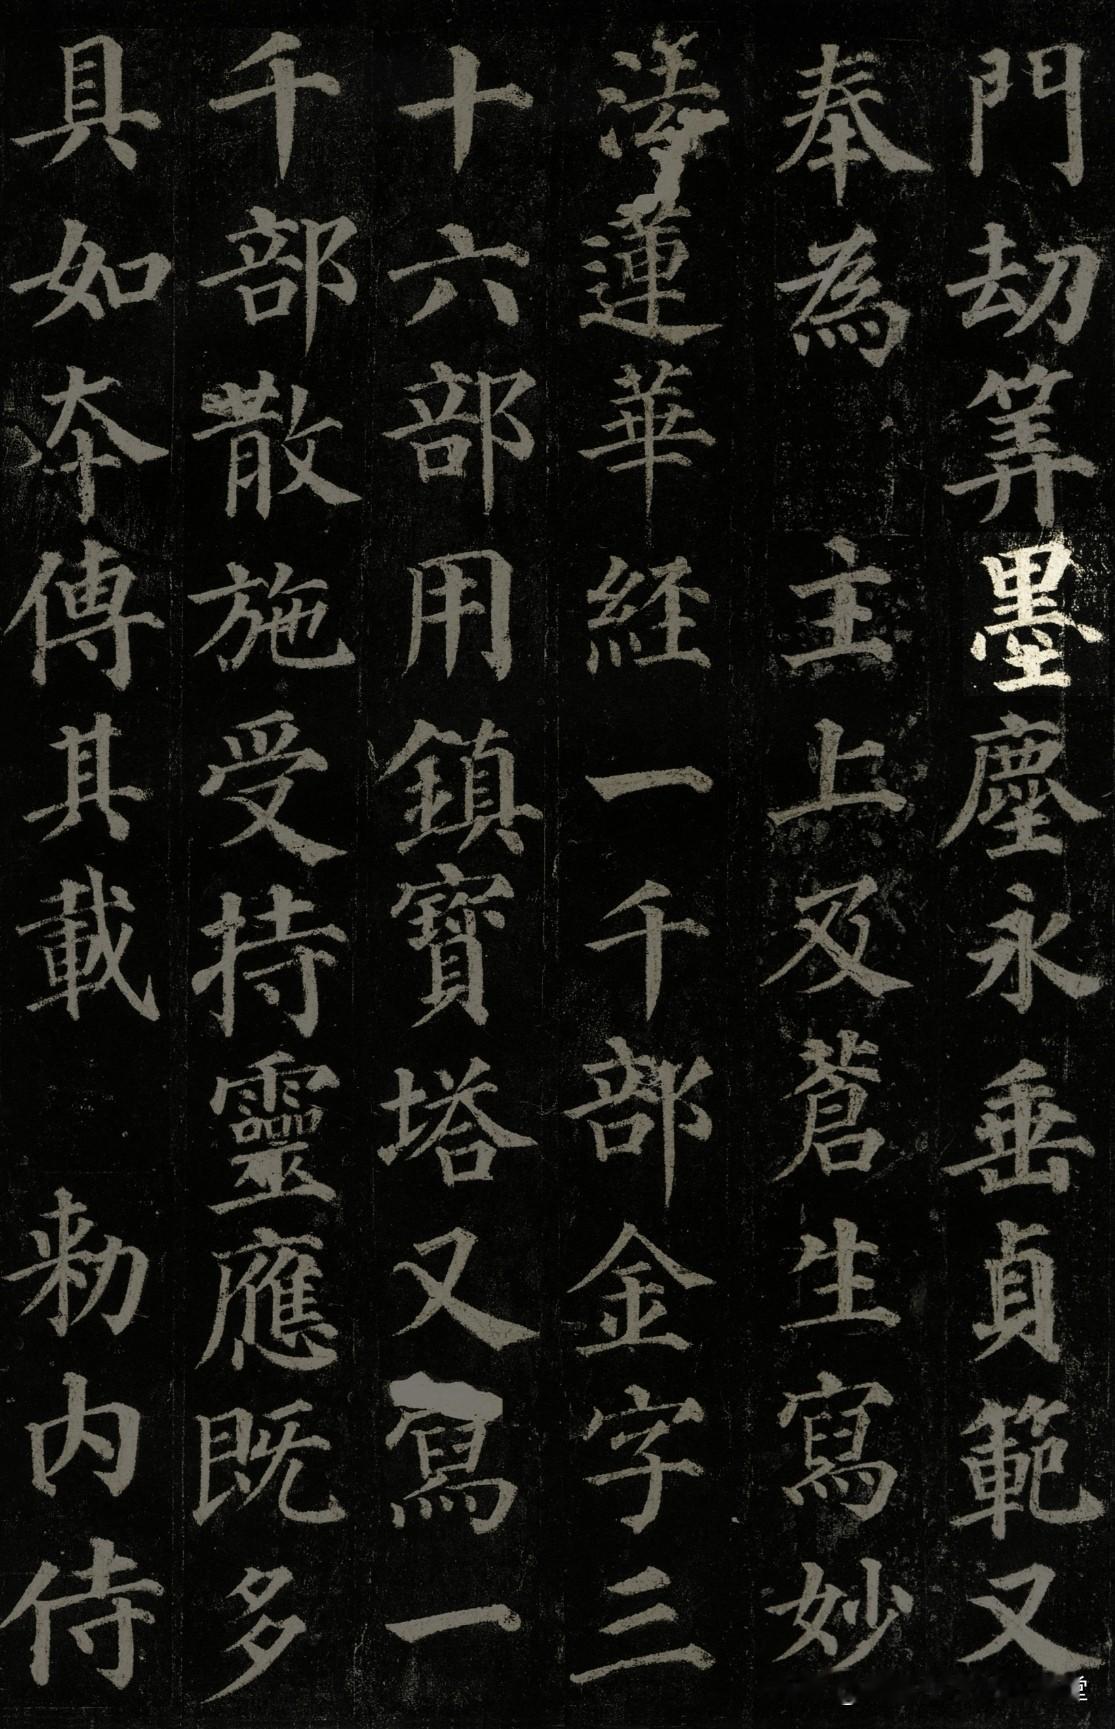 門劫筭墨塵永垂貞範又
奉為主上及蒼生寫妙
法蓮華經一千部金字三
十六部用鎮寶塔又寫一
千部散施受持靈應既多
具如本傳其載勑內侍